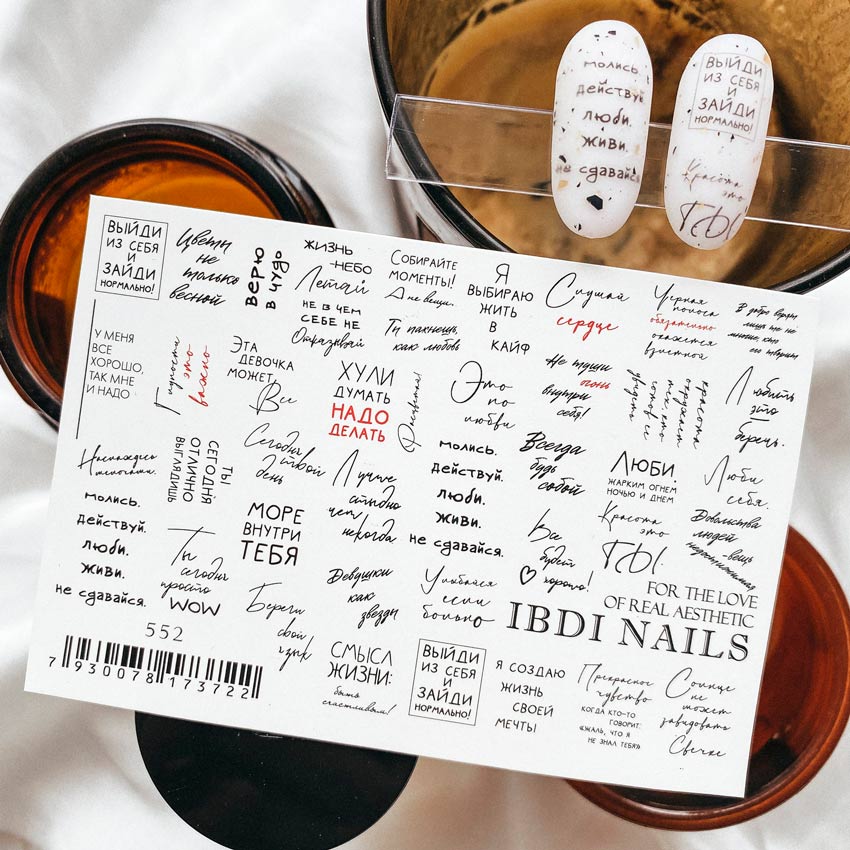 молись.
действуй.
люби.
живи.
не сдавайся.
ВЫЙДИ
ИЗ СЕБЯ
И
ЗАЙДИ
НОРМАЛЬНО!
Красота
это
ТЫ.
ВЫЙДИ
ИЗ СЕБЯ
И
ЗАЙДИ
НОРМАЛЬНО!
Цвети
не
только
весной
Верю
в чудо
ЖИЗНЬ
-НЕБО
Летай
НЕ В ЧЕМ
СЕБЕ НЕ
Отказывай
СОБИРАЙТЕ
МОМЕНТЫ!
А не вещи.
Ты пахнешь,
как любовь
Я
ВЫБИРАЮ
ЖИТЬ
В
КАЙФ
Слушай
сердце
Черная
полоса
обязательно
окажется
взлетной
У МЕНЯ
ВСЕ
ХОРОШО,
ТАК МНЕ
И НАДО
это
важно
ЭТА
ДЕВОЧКА
МОЖЕТ,
Все
ХУЛИ
ДУМАТЬ
НАДО
ДЕЛАТЬ
Расцветай!
Это
по
любви
Не туши
огонь
внутри
себя!
Любить
это
беречь.
Наслаждаюсь
мелочами.
ТЫ
СЕГОДНЯ
ОТЛИЧНО
ВЫГЛЯДИШЬ
Сегодня
твой
день
Лучше
стыдно
чем
никогда
молись.
действуй.
люби.
живи.
не сдавайся.
Всегда
будь
собой
ЛЮБИ.
ЖАРКИМ ОГНЕМ
НОЧЬЮ И ДНЕМ
Люби
себя.
молись.
действуй.
люби.
живи.
не сдавайся.
Ты
сегодня
просто
WOW
МОРЕ
ВНУТРИ
ТЕБЯ
Береги
свой
Девушки
как
звезды
Улыбайся
если
больно
Все
будет
хорошо!
Красота
это
ТЫ.
FOR THE LOVE
OF REAL AESTHETIC
IBDI NAILS
552
7 930078 173722
СМЫСЛ
ЖИЗНИ:
быть
счастливым!
ВЫЙДИ
ИЗ СЕБЯ
И
ЗАЙДИ
НОРМАЛЬНО!
Я СОЗДАЮ
ЖИЗНЬ
СВОЕЙ
МЕЧТЫ
Прекрасное
чувство
КОГДА КТО-ТО
ГОВОРИТ:
«ЖАЛЬ, ЧТО Я
НЕ ЗНАЛ ТЕБЯ»
Солнце
не
может
завидовать
Свечке